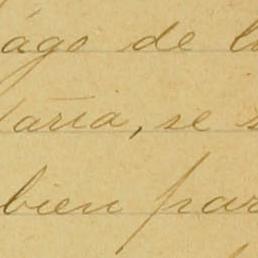 ago de l
aria, se s
bien par